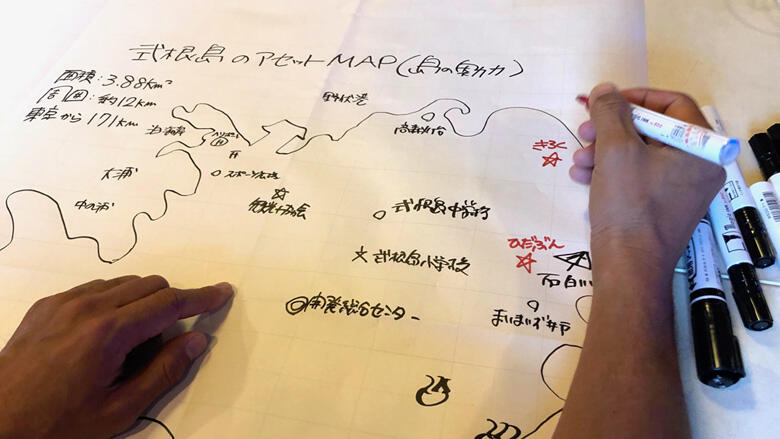 式根島のアセットMAP(島の魅力)
面積:3.88km²
周囲:約12km
東京から171km
野伏港
泊海岸
ヘリポート
高森灯台
きろく
大浦
スポーツ広場
中の浦
観光協会
式根島中学校
ひだぶん
式根島小学校
石白川
開発総合センター
まいまいず井戸